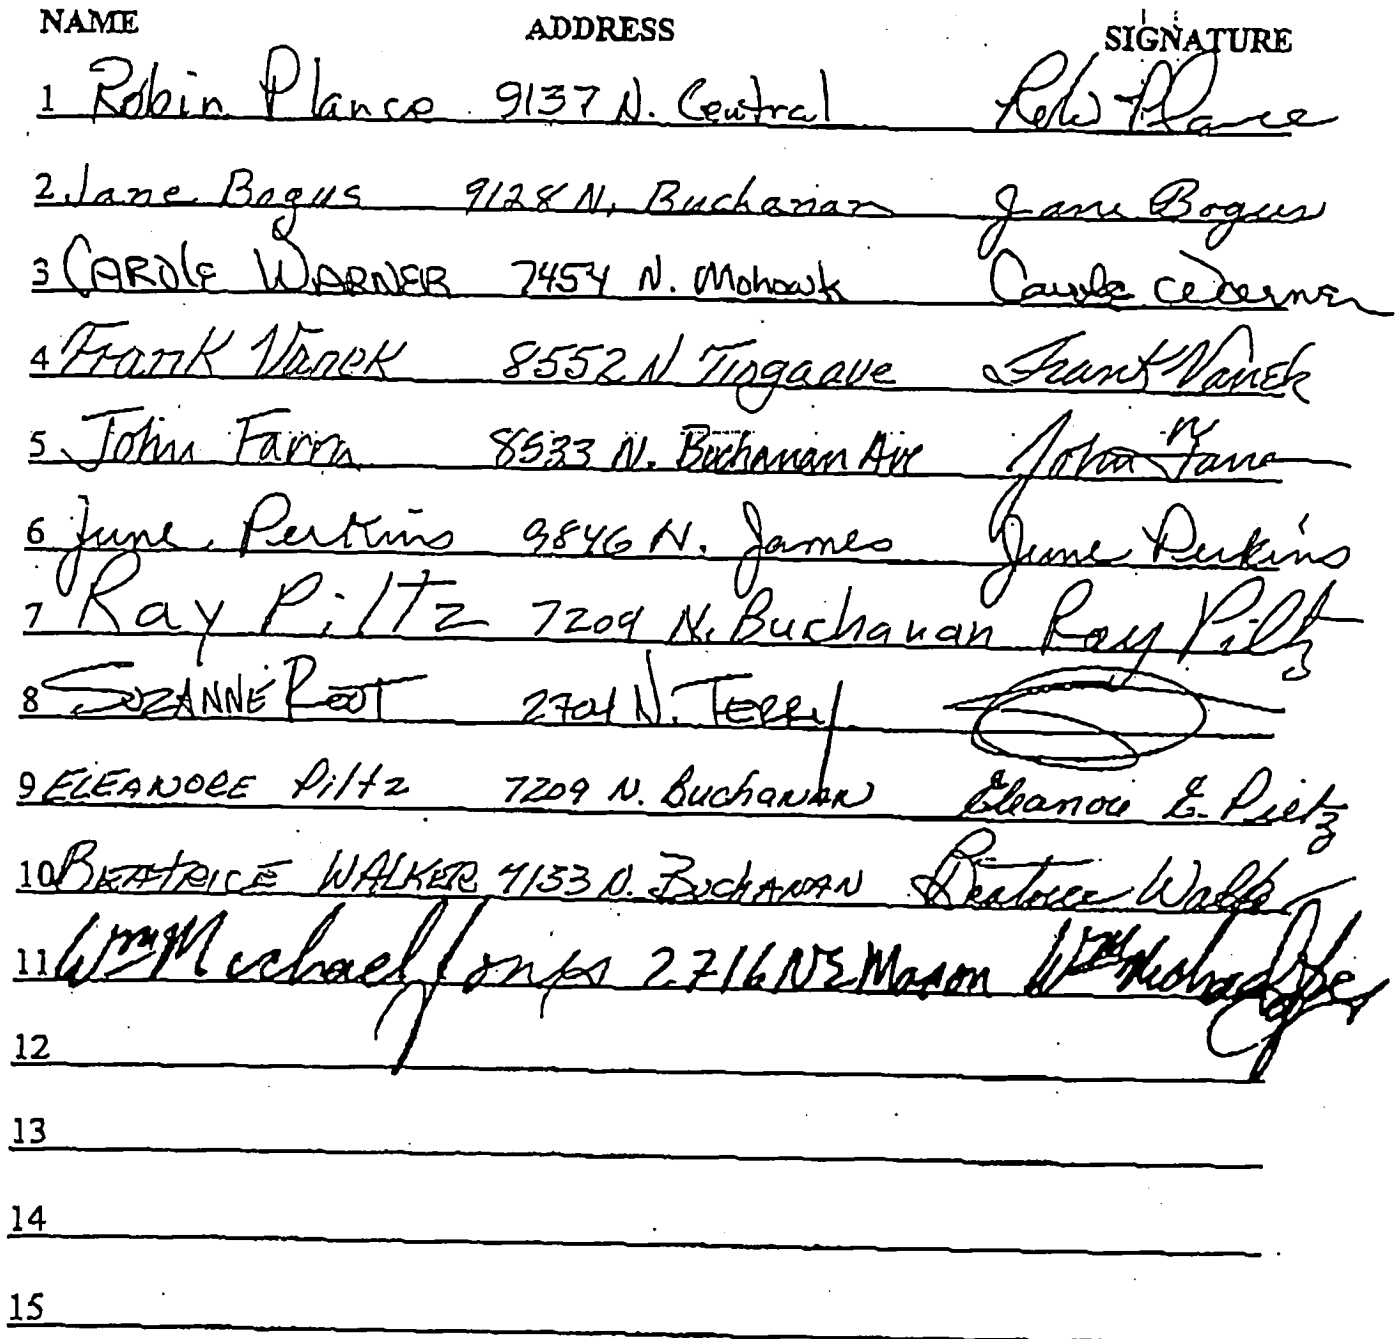 NAME ADDRESS SIGNATURE
1 Robin Plance 9137 N. Central Robin Plance
2 Jane Bogus 9128 N. Buchanan Jane Bogus
3 CAROLE WARNER 7454 N. Mohawk Carole Warner
4 Frank Vanek 8552 N Tioga ave Frank Vanek
5 John Farra 8533 N. Buchanan Ave John
6 June Perkins 9846 N. James June Perkins
7 Ray Piltz 7209 N. Buchanan Ray Piltz
8 SUZANNE ROOT 2704 N. TERRY
9 ELEANORE Piltz 7209 N. Buchanan Eleanore E. Piltz
10 BEATRICE WALKER 7133 N. BUCHANAN Beatrice Walker
11 Wm Michael Jones 2716 NE Mason Wm Michael Jones
12
13
14
15